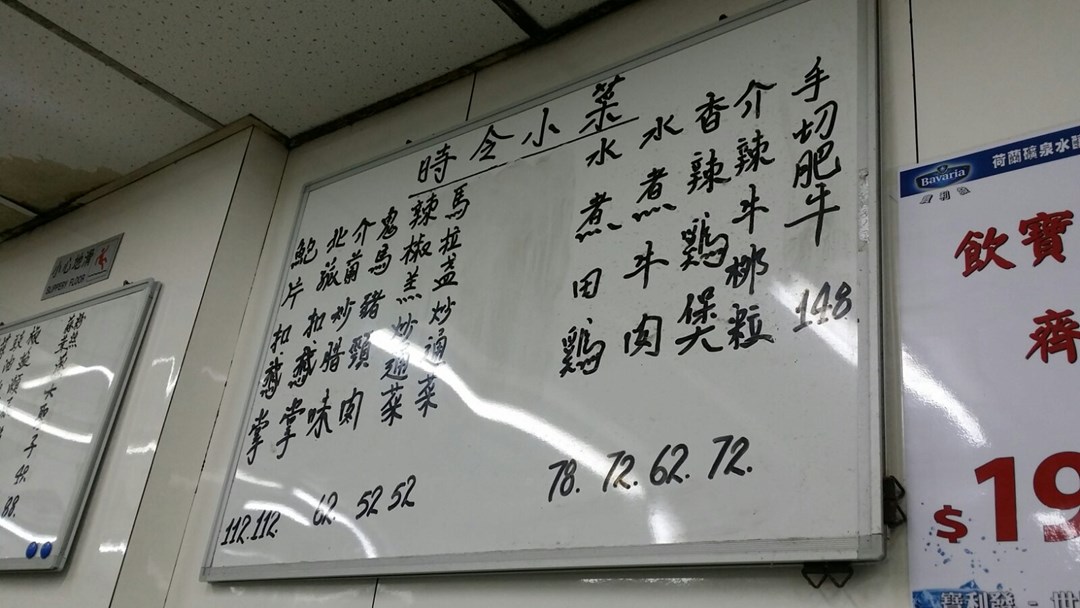 時令小菜
手切肥牛 148
介辣牛柳粒 72.
香辣雞煲 62.
水煮牛肉 72.
水煮田雞 78.
馬拉盞炒通菜 52
辣椒羔炒通菜 52
鬼馬豬頸肉
介蘭炒腊味 62
北菰扣鵝掌 112.
鮑片扣鵝掌 112.
小心地滑
SLIPPERY FLOOR
49.
88.
Bavaria
寶利發
荷蘭礦泉水醞
飲寶
齊
$19
寶利發 - 世